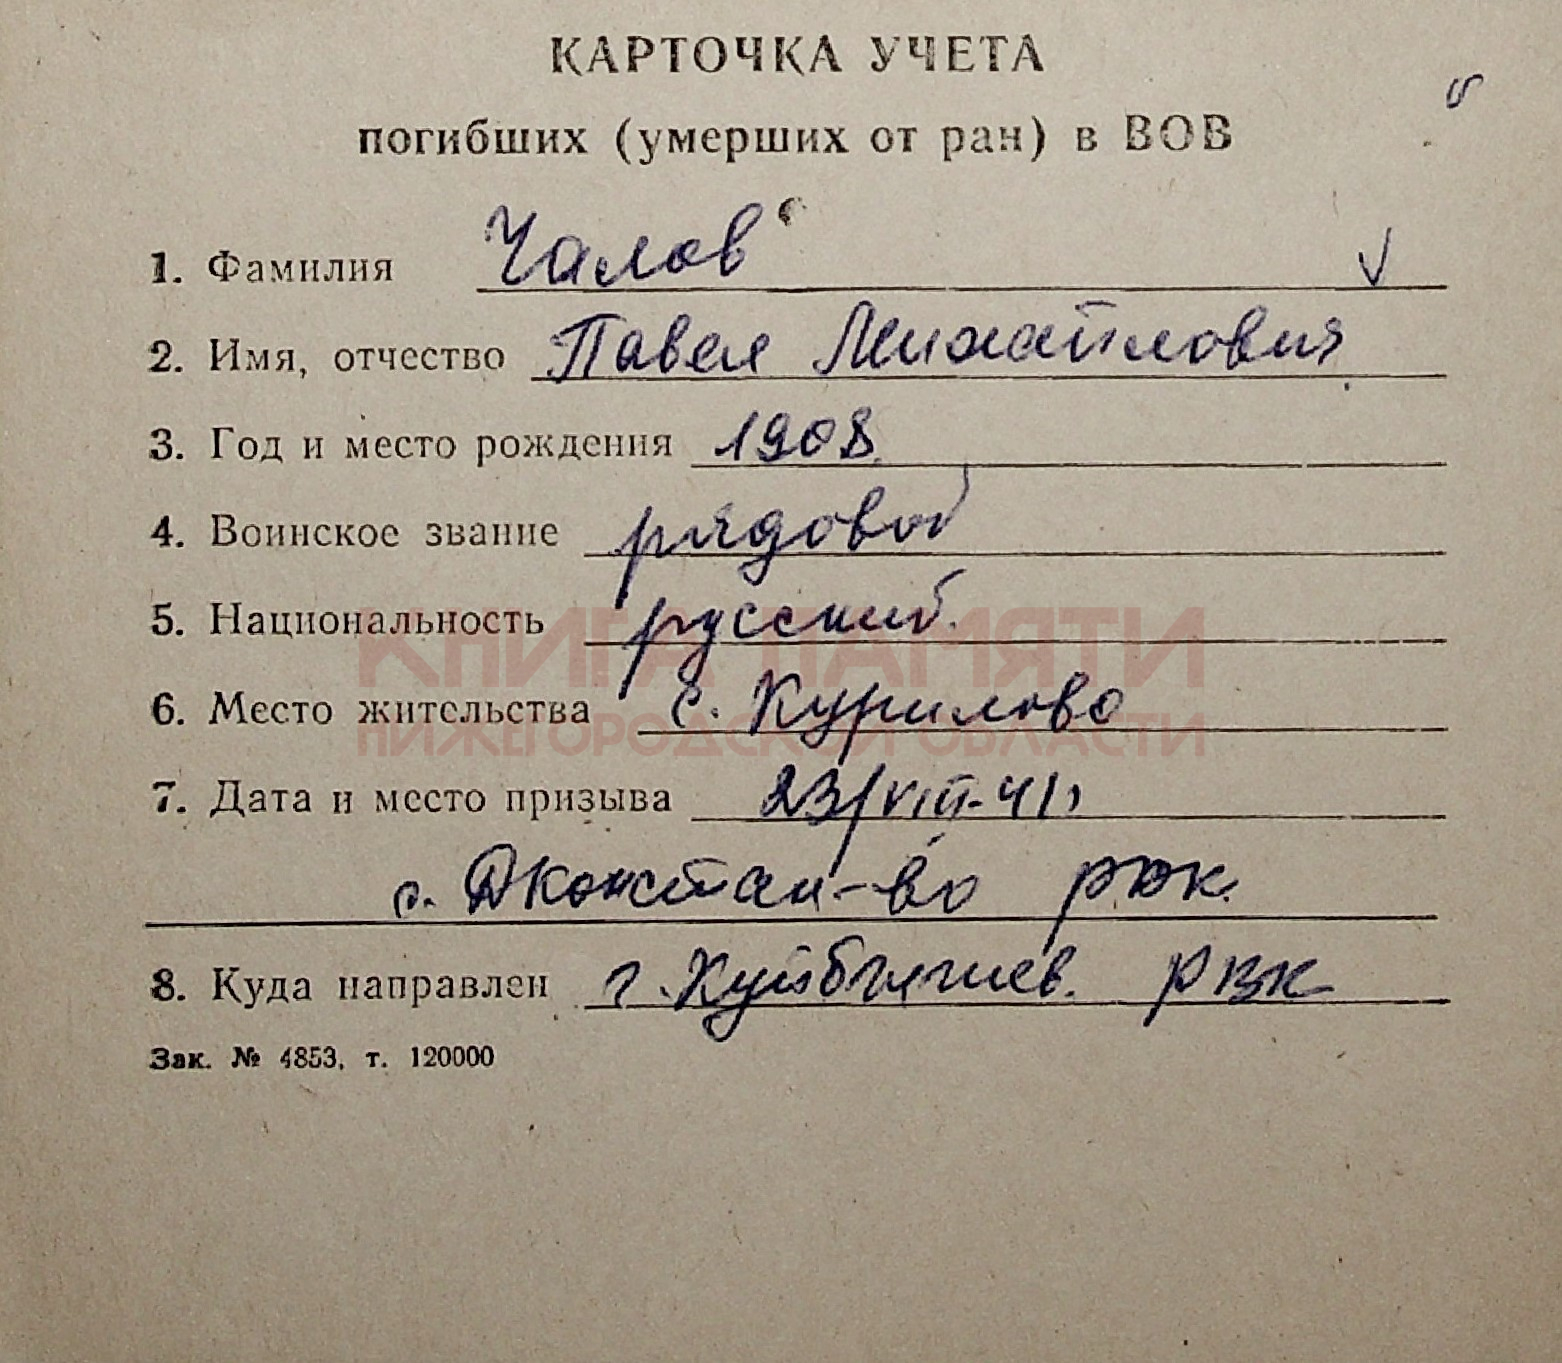 КАРТОЧКА УЧЕТА
погибших (умерших от ран) в ВОВ
1. Фамилия Чалов
2. Имя, отчество Павел Михайлович
3. Год и место рождения 1908
4. Воинское звание рядовой
5. Национальность русский.
КНИГА ПАМЯТИ
6. Место жительства с. Курилово
НИЖЕГОРОДСКОЙ ОБЛАСТИ
7. Дата и место призыва 23/VIII-41
с. Дконстан-во
8. Куда направлен г. Куйбышев. РВК
Зак. № 4853, т. 120000